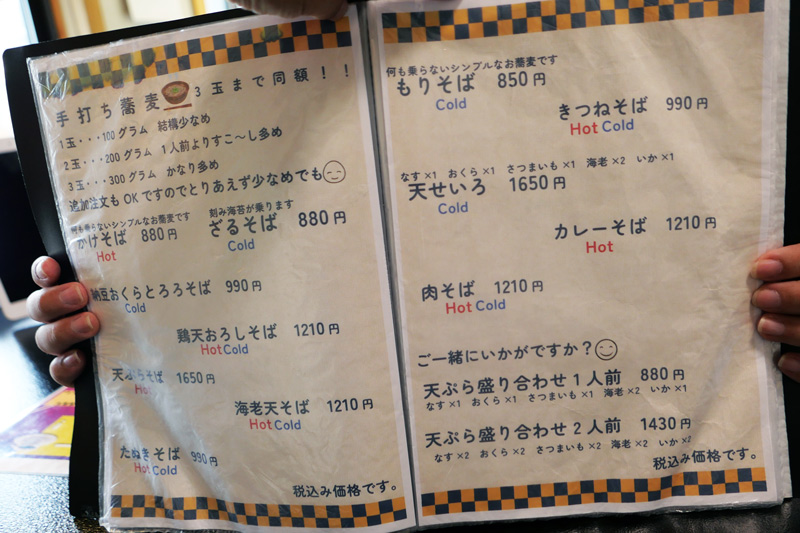 手打ち蕎麦 3玉まで同額！！
1玉・・・100グラム 結構少なめ
2玉・・・200グラム 1人前よりすこ〜し多め
3玉・・・300グラム かなり多め
追加注文もOKですのでとりあえず少なめでも
何も乗らないシンプルなお蕎麦です
かけそば 880円
Hot
刻み海苔が乗ります
ざるそば 880円
Cold
納豆おくらとろろそば 990円
Cold
鶏天おろしそば 1210円
Hot Cold
天ぷらそば 1650円
Hot
海老天そば 1210円
Hot Cold
たぬきそば 990円
Hot Cold
税込み価格です。
何も乗らないシンプルなお蕎麦です
もりそば 850円
Cold
きつねそば 990円
Hot Cold
なす×1 おくら×1 さつまいも×1 海老×2 いか×1
天せいろ 1650円
Cold
カレーそば 1210円
Hot
肉そば 1210円
Hot Cold
ご一緒にいかがですか？
天ぷら盛り合わせ1人前 880円
なす×1 おくら×1 さつまいも×1 海老×2 いか×1
天ぷら盛り合わせ2人前 1430円
なす×2 おくら×2 さつまいも×2 海老×2 いか×2
税込み価格です。